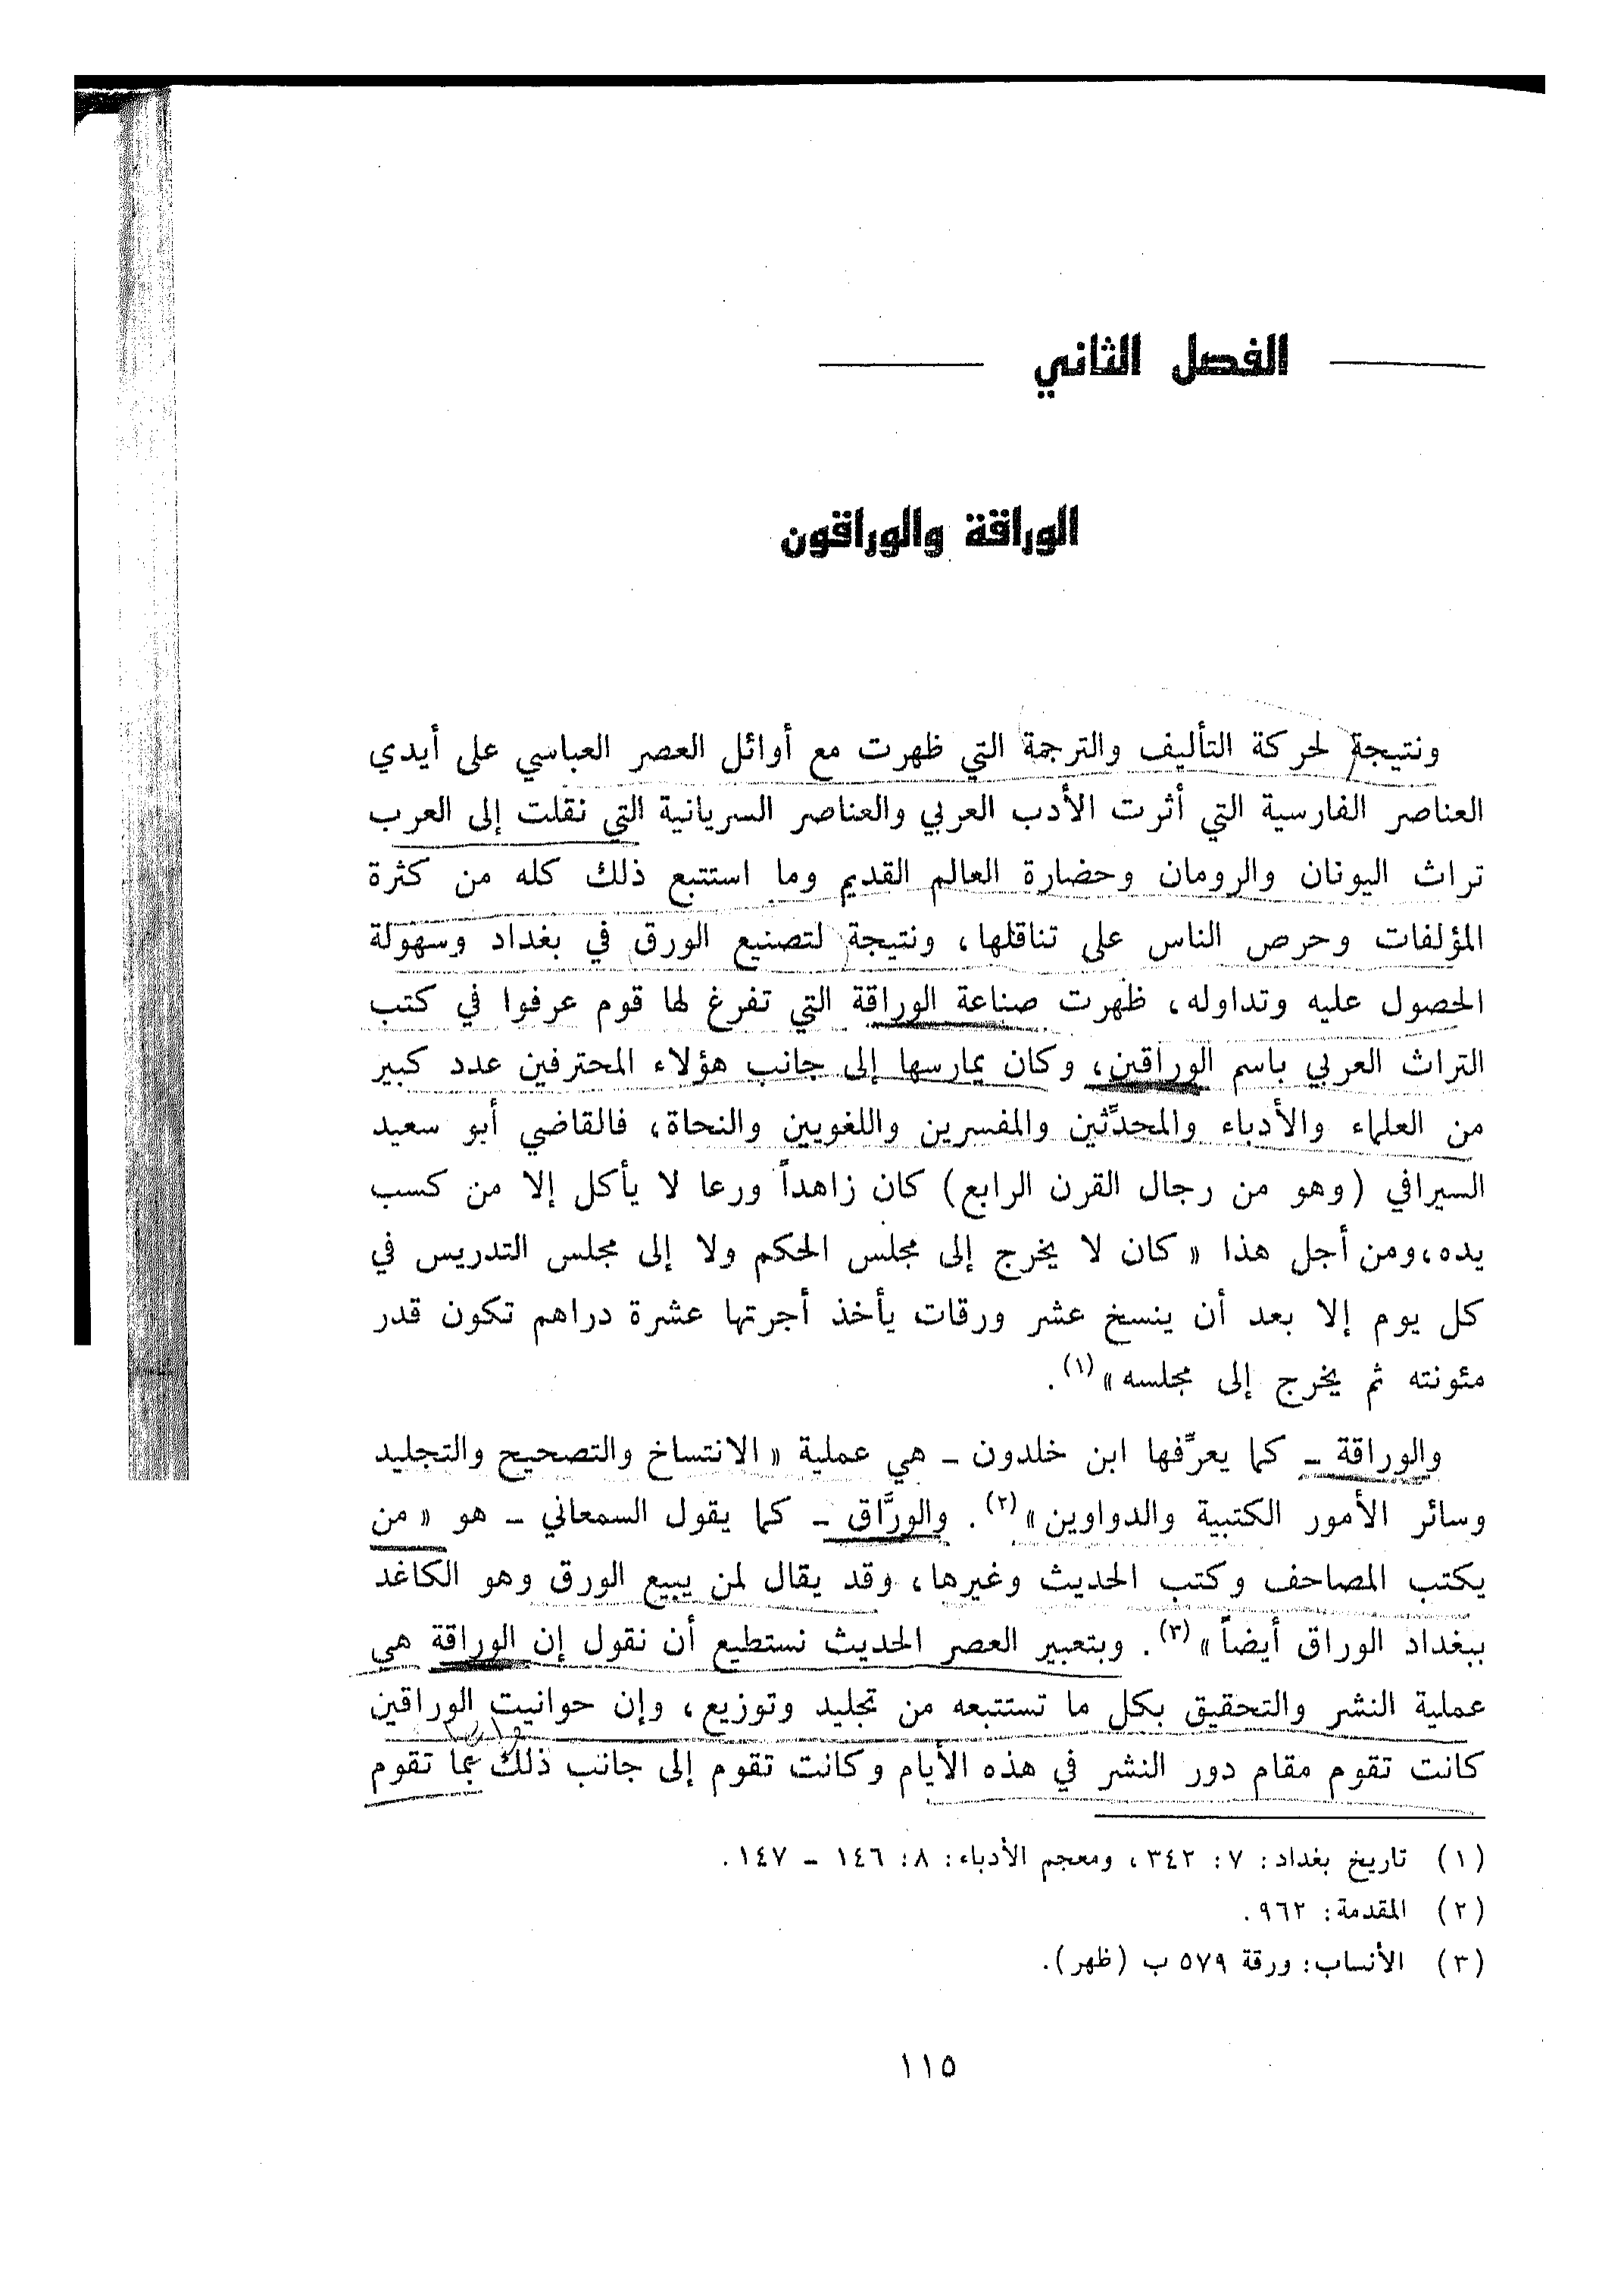 الفصل الثاني
الوراقة والوراقون
ونتيجة لحركة التأليف والترجمة التي ظهرت مع أوائل العصر العباسي على أيدي
العناصر الفارسية التي أثرت الأدب العربي والعناصر السريانية التي نقلت إلى العرب
تراث اليونان والرومان وحضارة العالم القديم وما استتبع ذلك كله من كثرة
المؤلفات وحرص الناس على تناقلها، ونتيجة لتصنيع الورق في بغداد وسهولة
الحصول عليه وتداوله، ظهرت صناعة الوراقة التي تفرغ لها قوم عرفوا في كتب
التراث العربي باسم الوراقين، وكان يمارسها إلى جانب هؤلاء المحترفين عدد كبير
من العلماء والأدباء والمحدِّثين والمفسرين واللغويين والنحاة، فالقاضي أبو سعيد
السيرافي (وهو من رجال القرن الرابع) كان زاهداً ورعا لا يأكل إلا من كسب
يده، ومن أجل هذا « كان لا يخرج إلى مجلس الحكم ولا إلى مجلس التدريس في
كل يوم إلا بعد أن ينسخ عشر ورقات يأخذ أجرتها عشرة دراهم تكون قدر
مئونته ثم يخرج إلى مجلسه » (١).
والوراقة – كما يعرِّفها ابن خلدون – هي عملية « الانتساخ والتصحيح والتجليد
وسائر الأمور الكتبية والدواوين » (٢). والورَّاق – كما يقول السمعاني – هو « من
يكتب المصاحف وكتب الحديث وغيرها، وقد يقال لمن يبيع الورق وهو الكاغد
ببغداد الوراق أيضاً » (٣). وبتعبير العصر الحديث نستطيع أن نقول إن الوراقة هي
عملية النشر والتحقيق بكل ما تستتبعه من تجليد وتوزيع، وإن حوانيت الوراقين
كانت تقوم مقام دور النشر في هذه الأيام وكانت تقوم إلى جانب ذلك بما تقوم
(١) تاريخ بغداد: ٧: ٣٤٢، ومعجم الأدباء: ٨: ١٤٦ – ١٤٧.
(٢) المقدمة: ٩٦٢.
(٣) الأنساب: ورقة ٥٧٩ ب (ظهر).
١١٥